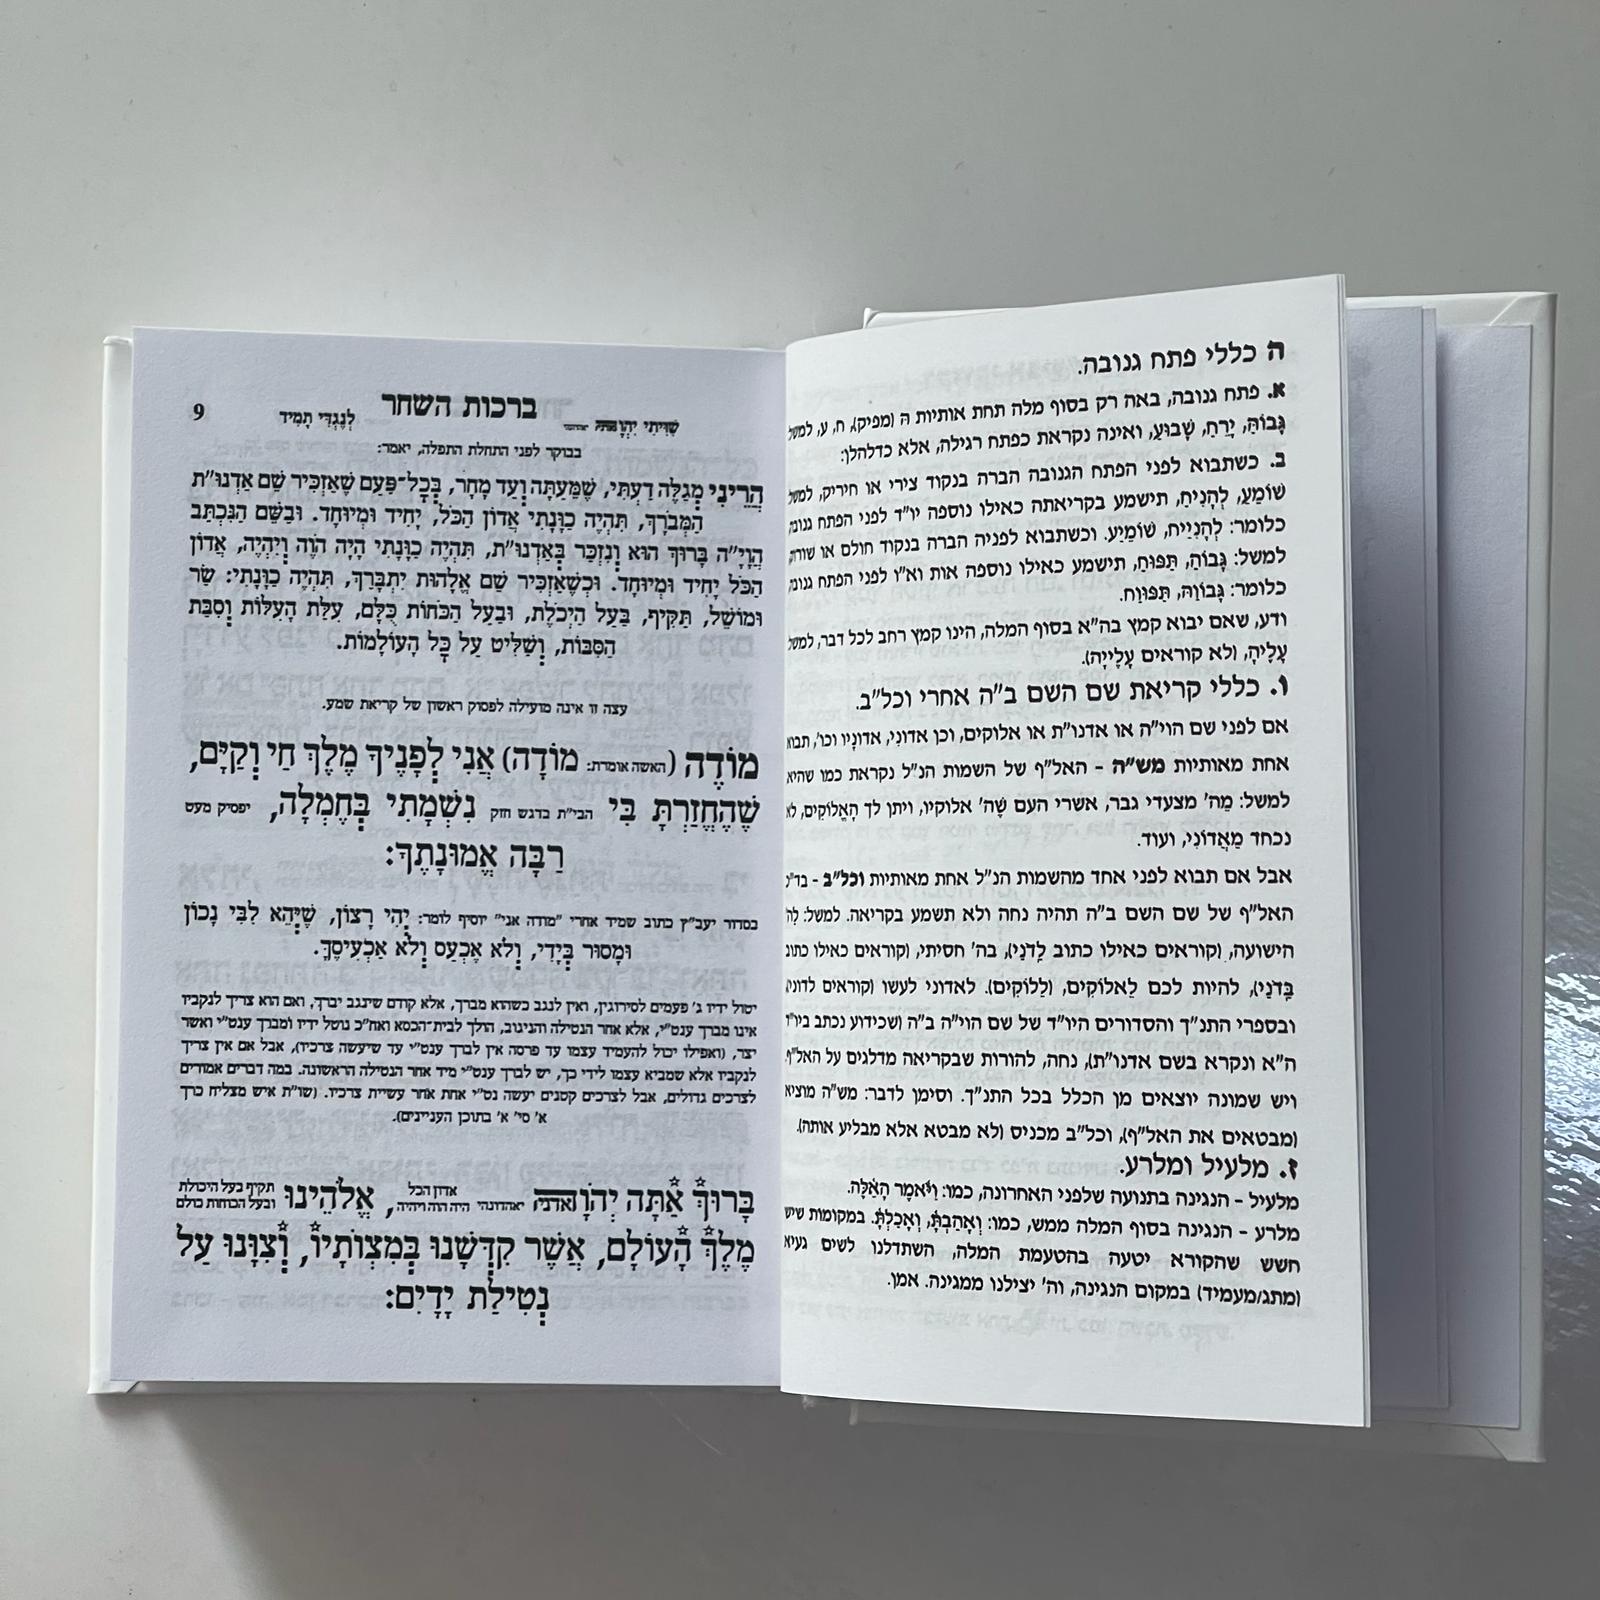 ה כללי פתח גנובה.
א. פתח גנובה, באה רק בסוף מלה תחת אותיות הּ (מפיק), ח, ע, למשל
גָּבוֹהַּ, יָרֵחַ, שָׁבוּעַ, ואינה נקראת כפתח רגילה, אלא כדלהלן:
ב. כשתבוא לפני הפתח הגנובה הברה בנקוד צירי או חיריק, למשל
שׁוֹמֵעַ, לְהָנִיחַ, תישמע בקריאתה כאילו נוספה יו"ד לפני הפתח גנובה,
כלומר: לְהָנִייַח, שׁוֹמֵיַע. וכשתבוא לפניה הברה בנקוד חולם או שורוק,
למשל: גָּבוֹהַּ, תַּפּוּחַ, תישמע כאילו נוספה אות וא"ו לפני הפתח גנובה,
כלומר: גָּבוֹוַהּ, תַּפּוּוַח.
ודע, שאם יבוא קמץ בה"א בסוף המלה, הינו קמץ רחב לכל דבר, למשל
עָלֶיהָ, (ולא קוראים עָלֶייָה).
ו. כללי קריאת שם השם ב"ה אחרי וכל"ב.
אם לפני שם הוי"ה או אדנו"ת או אלוקים, וכן אדוני, אדוניו וכו', תבוא
אחת מאותיות מש"ה - האל"ף של השמות הנ"ל נקראת כמו שהיא
למשל: מֵה' מצעדי גבר, אשרי העם שֶׁה' אלוקיו, ויתן לך הָאֱלוֹקִים, לא
נכחד מֵאֲדוֹנִי, ועוד.
אבל אם תבוא לפני אחד מהשמות הנ"ל אחת מאותיות וכל"ב - בד"כ
האל"ף של שם השם ב"ה תהיה נחה ולא תשמע בקריאה. למשל: לַה'
הישועה, (קוראים כאילו כתוב לַדֹנָי), בה' חסיתי, (קוראים כאילו כתוב
בַּדֹנָי), להיות לכם לֵאלוֹקִים, (לֵלוֹקִים). לאדוני לעשו (קוראים לדוני)
ובספרי התנ"ך והסדורים היו"ד של שם הוי"ה ב"ה (שכידוע נכתב ביו"ד
ה"א ונקרא בשם אדנו"ת), נחה, להורות שבקריאה מדלגים על האל"ף.
ויש שמונה יוצאים מן הכלל בכל התנ"ך. וסימן לדבר: מש"ה מוציא
(מבטאים את האל"ף), וכל"ב מכניס (לא מבטא אלא מבליע אותה).
ז. מלעיל ומלרע.
מלעיל - הנגינה בתנועה שלפני האחרונה, כמו: וַיֹּאמֶר הָאֵלֶּה.
מלרע - הנגינה בסוף המלה ממש, כמו: וְאָהַבְתָּ, וְאָכַלְתָּ. במקומות שיש
חשש שהקורא יטעה בהטעמת המלה, השתדלנו לשים געיא
(מתג/מעמיד) במקום הנגינה, וה' יצילנו ממגינה. אמן.
ברכות השחר
9
שִׁוִּיתִי יְהֹוָה לְנֶגְדִּי תָמִיד
בבוקר לפני התחלת התפלה, יאמר:
הֲרֵינִי מְגַלֶּה דַעְתִּי, שֶׁמֵּעַתָּה וְעַד מָחָר, בְּכָל-פַּעַם שֶׁאַזְכִּיר שֵׁם אַדְנוּ"ת
הַמְבֹרָךְ, תִּהְיֶה כַוָּנָתִי אֲדוֹן הַכֹּל, יָחִיד וּמְיוּחָד. וּבַשֵּׁם הַנִּכְתָּב
הֲוָיָ"ה בָּרוּךְ הוּא וְנִזְכַּר בְּאַדְנוּ"ת, תִּהְיֶה כַוָּנָתִי הָיָה הֹוֶה וְיִהְיֶה, אֲדוֹן
הַכֹּל יָחִיד וּמְיוּחָד. וּכְשֶׁאַזְכִּיר שֵׁם אֱלָהוּת יִתְבָּרַךְ, תִּהְיֶה כַוָּנָתִי: שַׂר
וּמוֹשֵׁל, תַּקִּיף, בַּעַל הַיְכֹלֶת, וּבַעַל הַכֹּחוֹת כֻּלָּם, עִלַּת הָעִלּוֹת וְסִבַּת
הַסִּבּוֹת, וְשַׁלִּיט עַל כָּל הָעוֹלָמוֹת.
עצה זו אינה מועילה לפסוק ראשון של קריאת שמע.
מוֹדֶה (האשה אומרת: מוֹדָה) אֲנִי לְפָנֶיךָ מֶלֶךְ חַי וְקַיָּם,
שֶׁהֶחֱזַרְתָּ בִּי הבי"ת בדגש חזק נִשְׁמָתִי בְּחֶמְלָה, יפסיק מעט
רַבָּה אֱמוּנָתֶךָ:
בסדור יעב"ץ כתוב שמיד אחרי "מודה אני" יוסיף לומר: יְהִי רָצוֹן, שֶׁיְּהֵא לִבִּי נָכוֹן
וּמָסוּר בְּיָדִי, וְלֹא אֶכְעַס וְלֹא אַכְעִיסֶךָ.
יטול ידיו ג' פעמים לסירוגין, ואין לנגב כשהוא מברך, אלא קודם שינגב יברך, ואם הוא צריך לנקביו
אינו מברך ענט"י, אלא אחר הנטילה והניגוב, הולך לבית-הכסא ואח"כ נוטל ידיו ומברך ענט"י ואשר
יצר, (ואפילו יכול להעמיד עצמו עד פרסה אין לברך ענט"י עד שיעשה צרכיו), אבל אם אין צריך
לנקביו אלא שמביא עצמו לידי כך, יש לברך ענט"י מיד אחר הנטילה הראשונה. במה דברים אמורים
לצרכים גדולים, אבל לצרכים קטנים יעשה נט"י אחת אחר עשיית צרכיו. (שו"ת איש מצליח כרך
א' סי' א' בתוכן העניינים).
בָּרוּךְ אַתָּה יְהֹוָה יאהדונהי אדון הכל היה הוה ויהיה, אֱלֹהֵינוּ תקיף בעל היכולת ובעל הכוחות כולם
מֶלֶךְ הָעוֹלָם, אֲשֶׁר קִדְּשָׁנוּ בְּמִצְוֹתָיו, וְצִוָּנוּ עַל
נְטִילַת יָדָיִם: